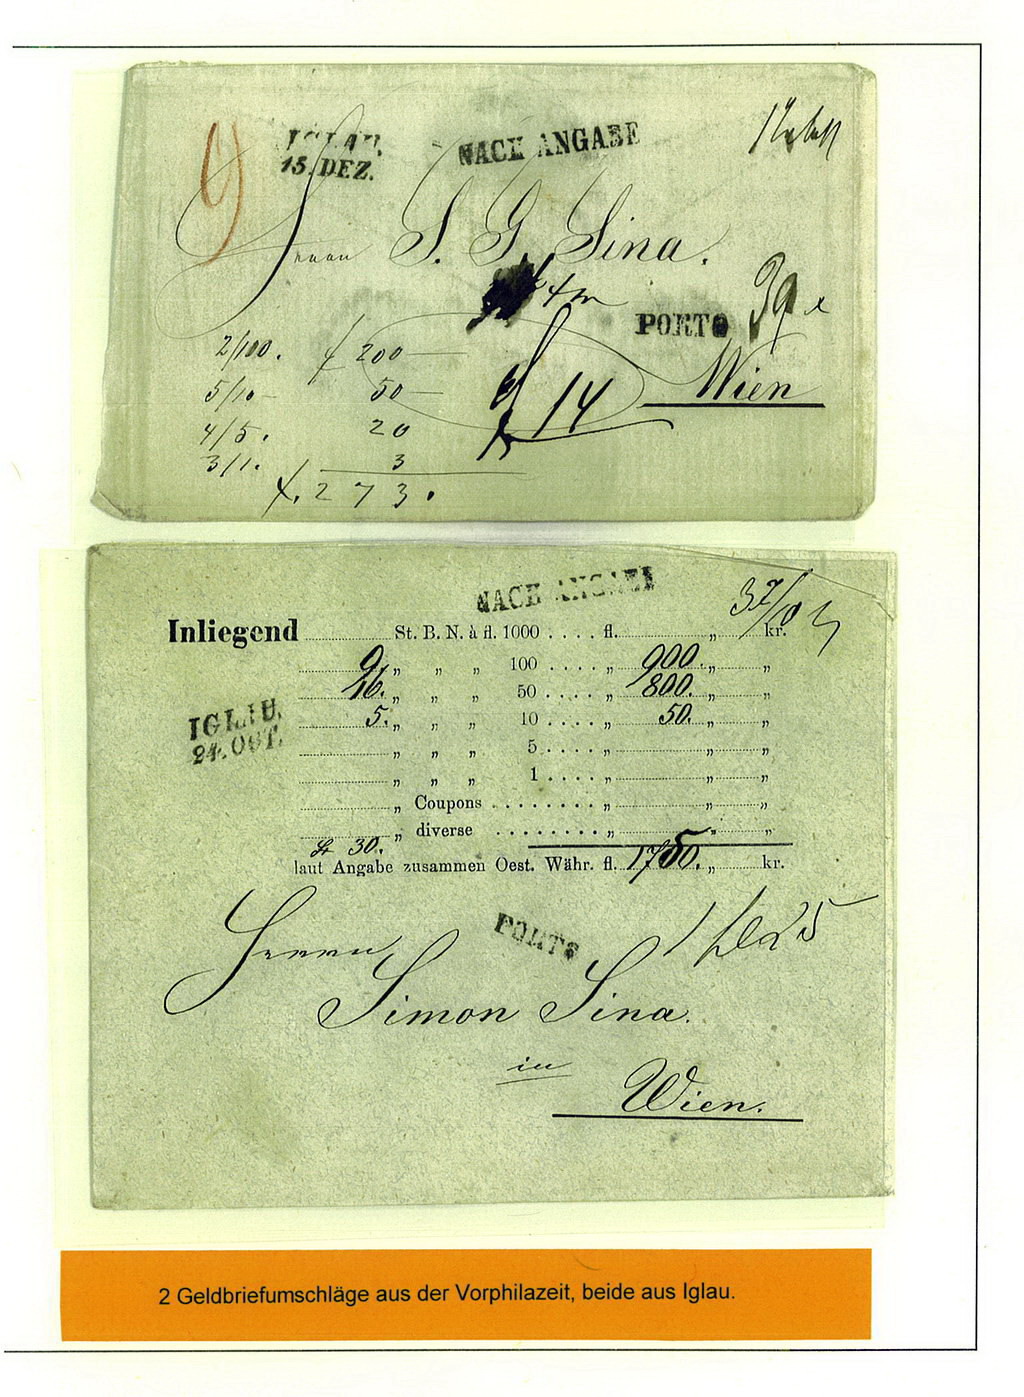 IGLAU.
15. DEZ.
NACH ANGABE
Herrn S. G. Sina.
PORTO
39 x
Wien
2/100. f 200 —
5/10 — 50 —
4/5. 20
3/1. 3
f. 273.
14
NACH ANGABE
37/10
Inliegend St. B. N. à fl. 1000 . . . . fl. „ kr.
9. „ „ „ 100 . . . . „ 900. „ „
16. „ „ „ 50 . . . . „ 800. „ „
5. „ „ „ 10 . . . . „ 50. „ „
„ „ „ 5 . . . . „ „ „
„ „ „ 1 . . . . „ „ „
„ Coupons . . . . . . . . „ „ „
„ diverse . . . . . . . . „ „ „
30.
laut Angabe zusammen Oest. Währ. fl. 1750. „ kr.
IGLAU.
24. OCT.
PORTO
Herrn
Simon Sina.
in
Wien.
2 Geldbriefumschläge aus der Vorphilazeit, beide aus Iglau.